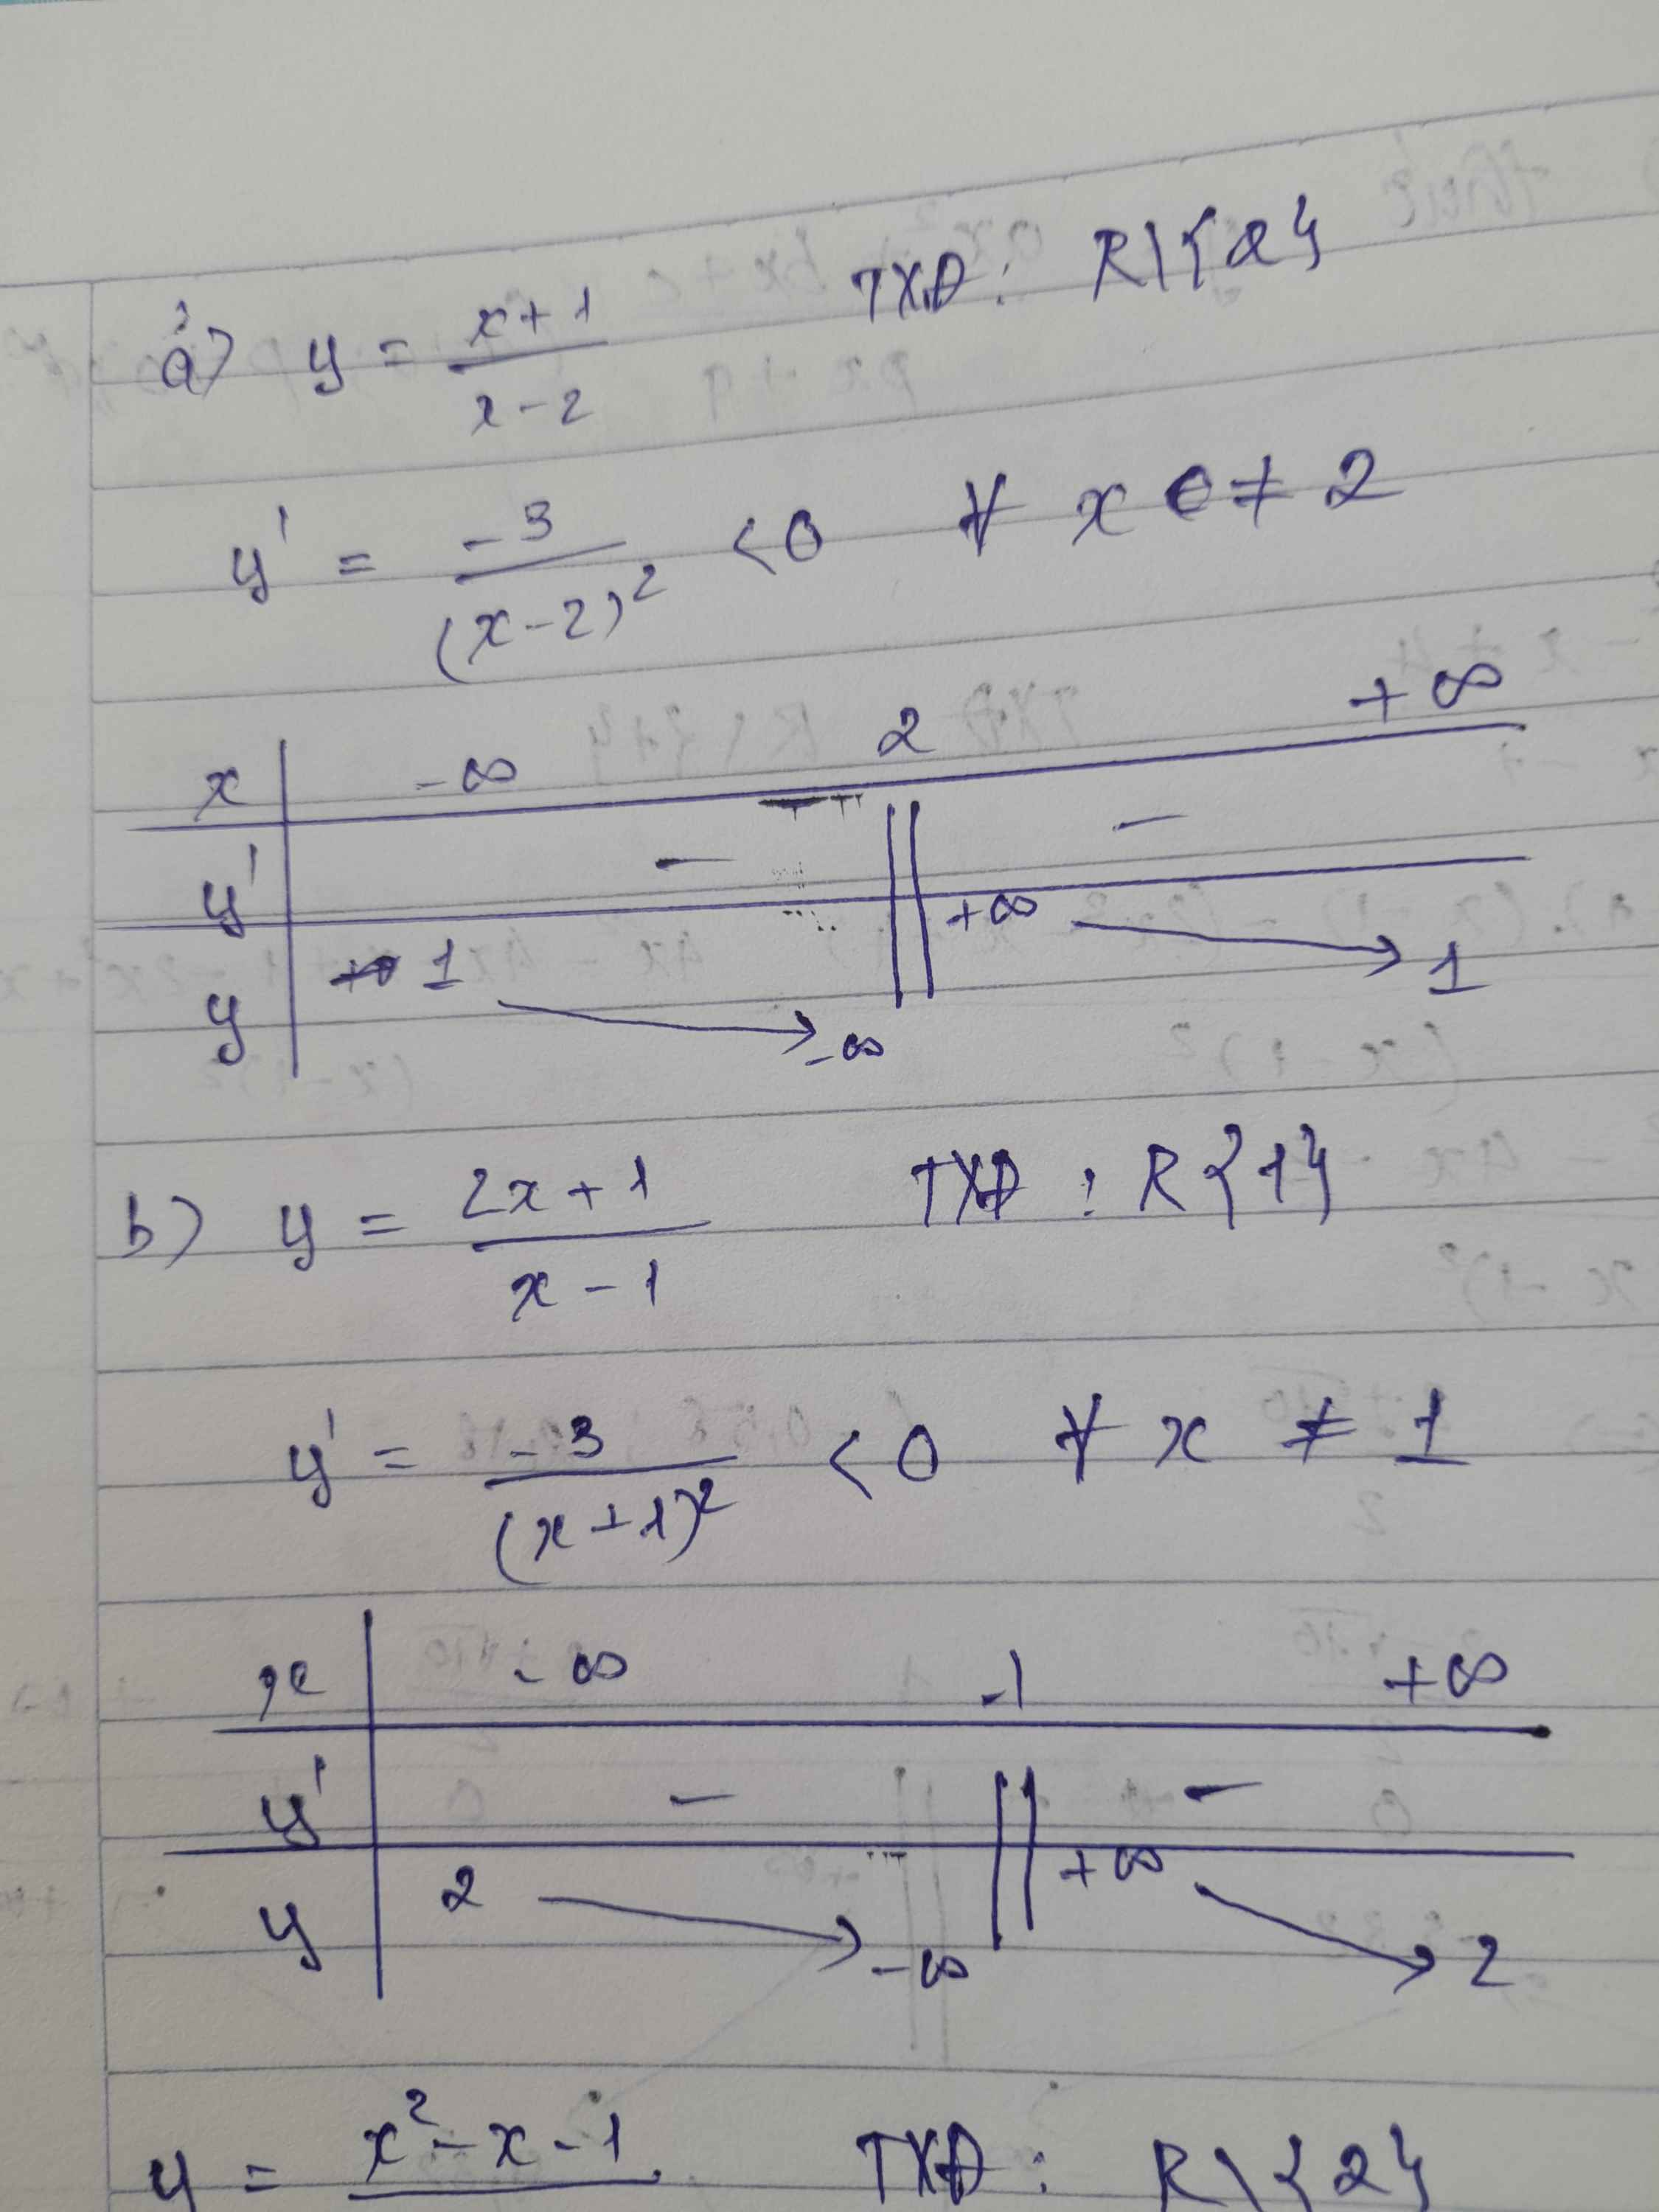 a) y = x+1 / x-2 TXĐ: R\{2}
y' = -3 / (x-2)² <0 ∀ x ≠ 2
x -∞ 2 +∞
y' - || -
y 1 → -∞ || +∞ → 1
b) y = 2x+1 / x-1 TXĐ: R{1}
y' = -3 / (x+1)² <0 ∀ x ≠ 1
x -∞ -1 +∞
y' - || -
y 2 → -∞ || +∞ → 2
y = x²-x-1 TXĐ: R\{2}